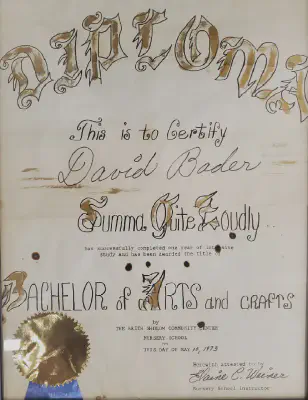 DIPLOMA
This is to Certify
David Bader
Summa Quite Loudly
has successfully completed one year of intensive
study and has been awarded the title of
BACHELOR of ARTS and CRAFTS
by
COMMUNITY CENTER
NURSERY SCHOOL
THIS DAY OF MAY 16, 1973
Hereunto attested to by
Elaine C. Weiner
Nursery School Instructor